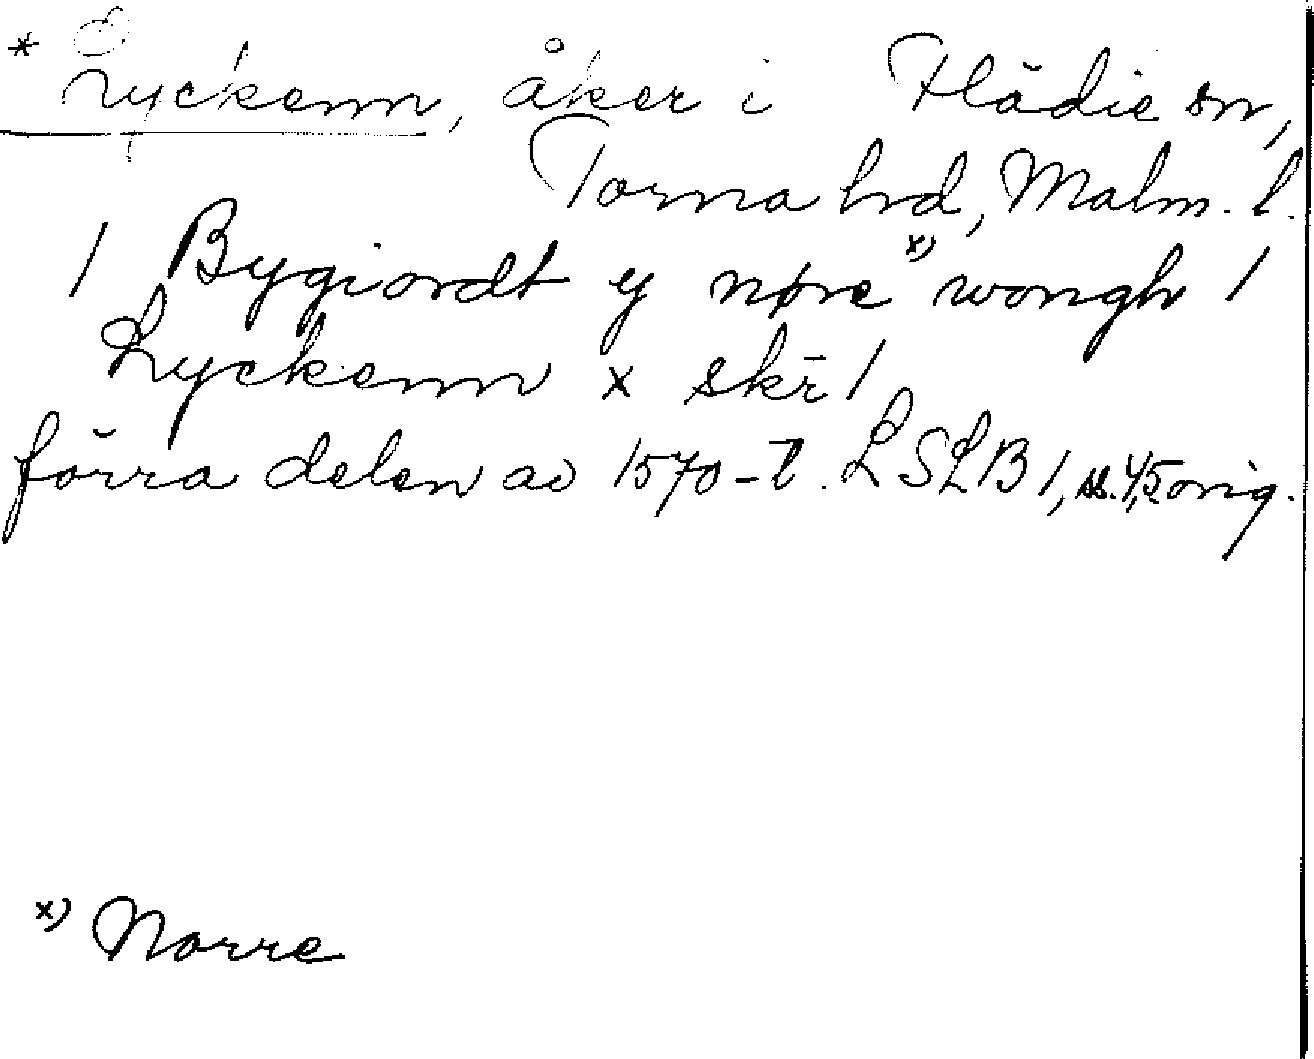 * Lyckenn, åker i Flädie sn,
Torna hrd, Malm. l.
/ Bygiordt y nøre x) wongh /
Lyckenn x skr̄ /
förra delen av 1570-t. LSLB 1, ss. 4,5 orig.
x) Norre